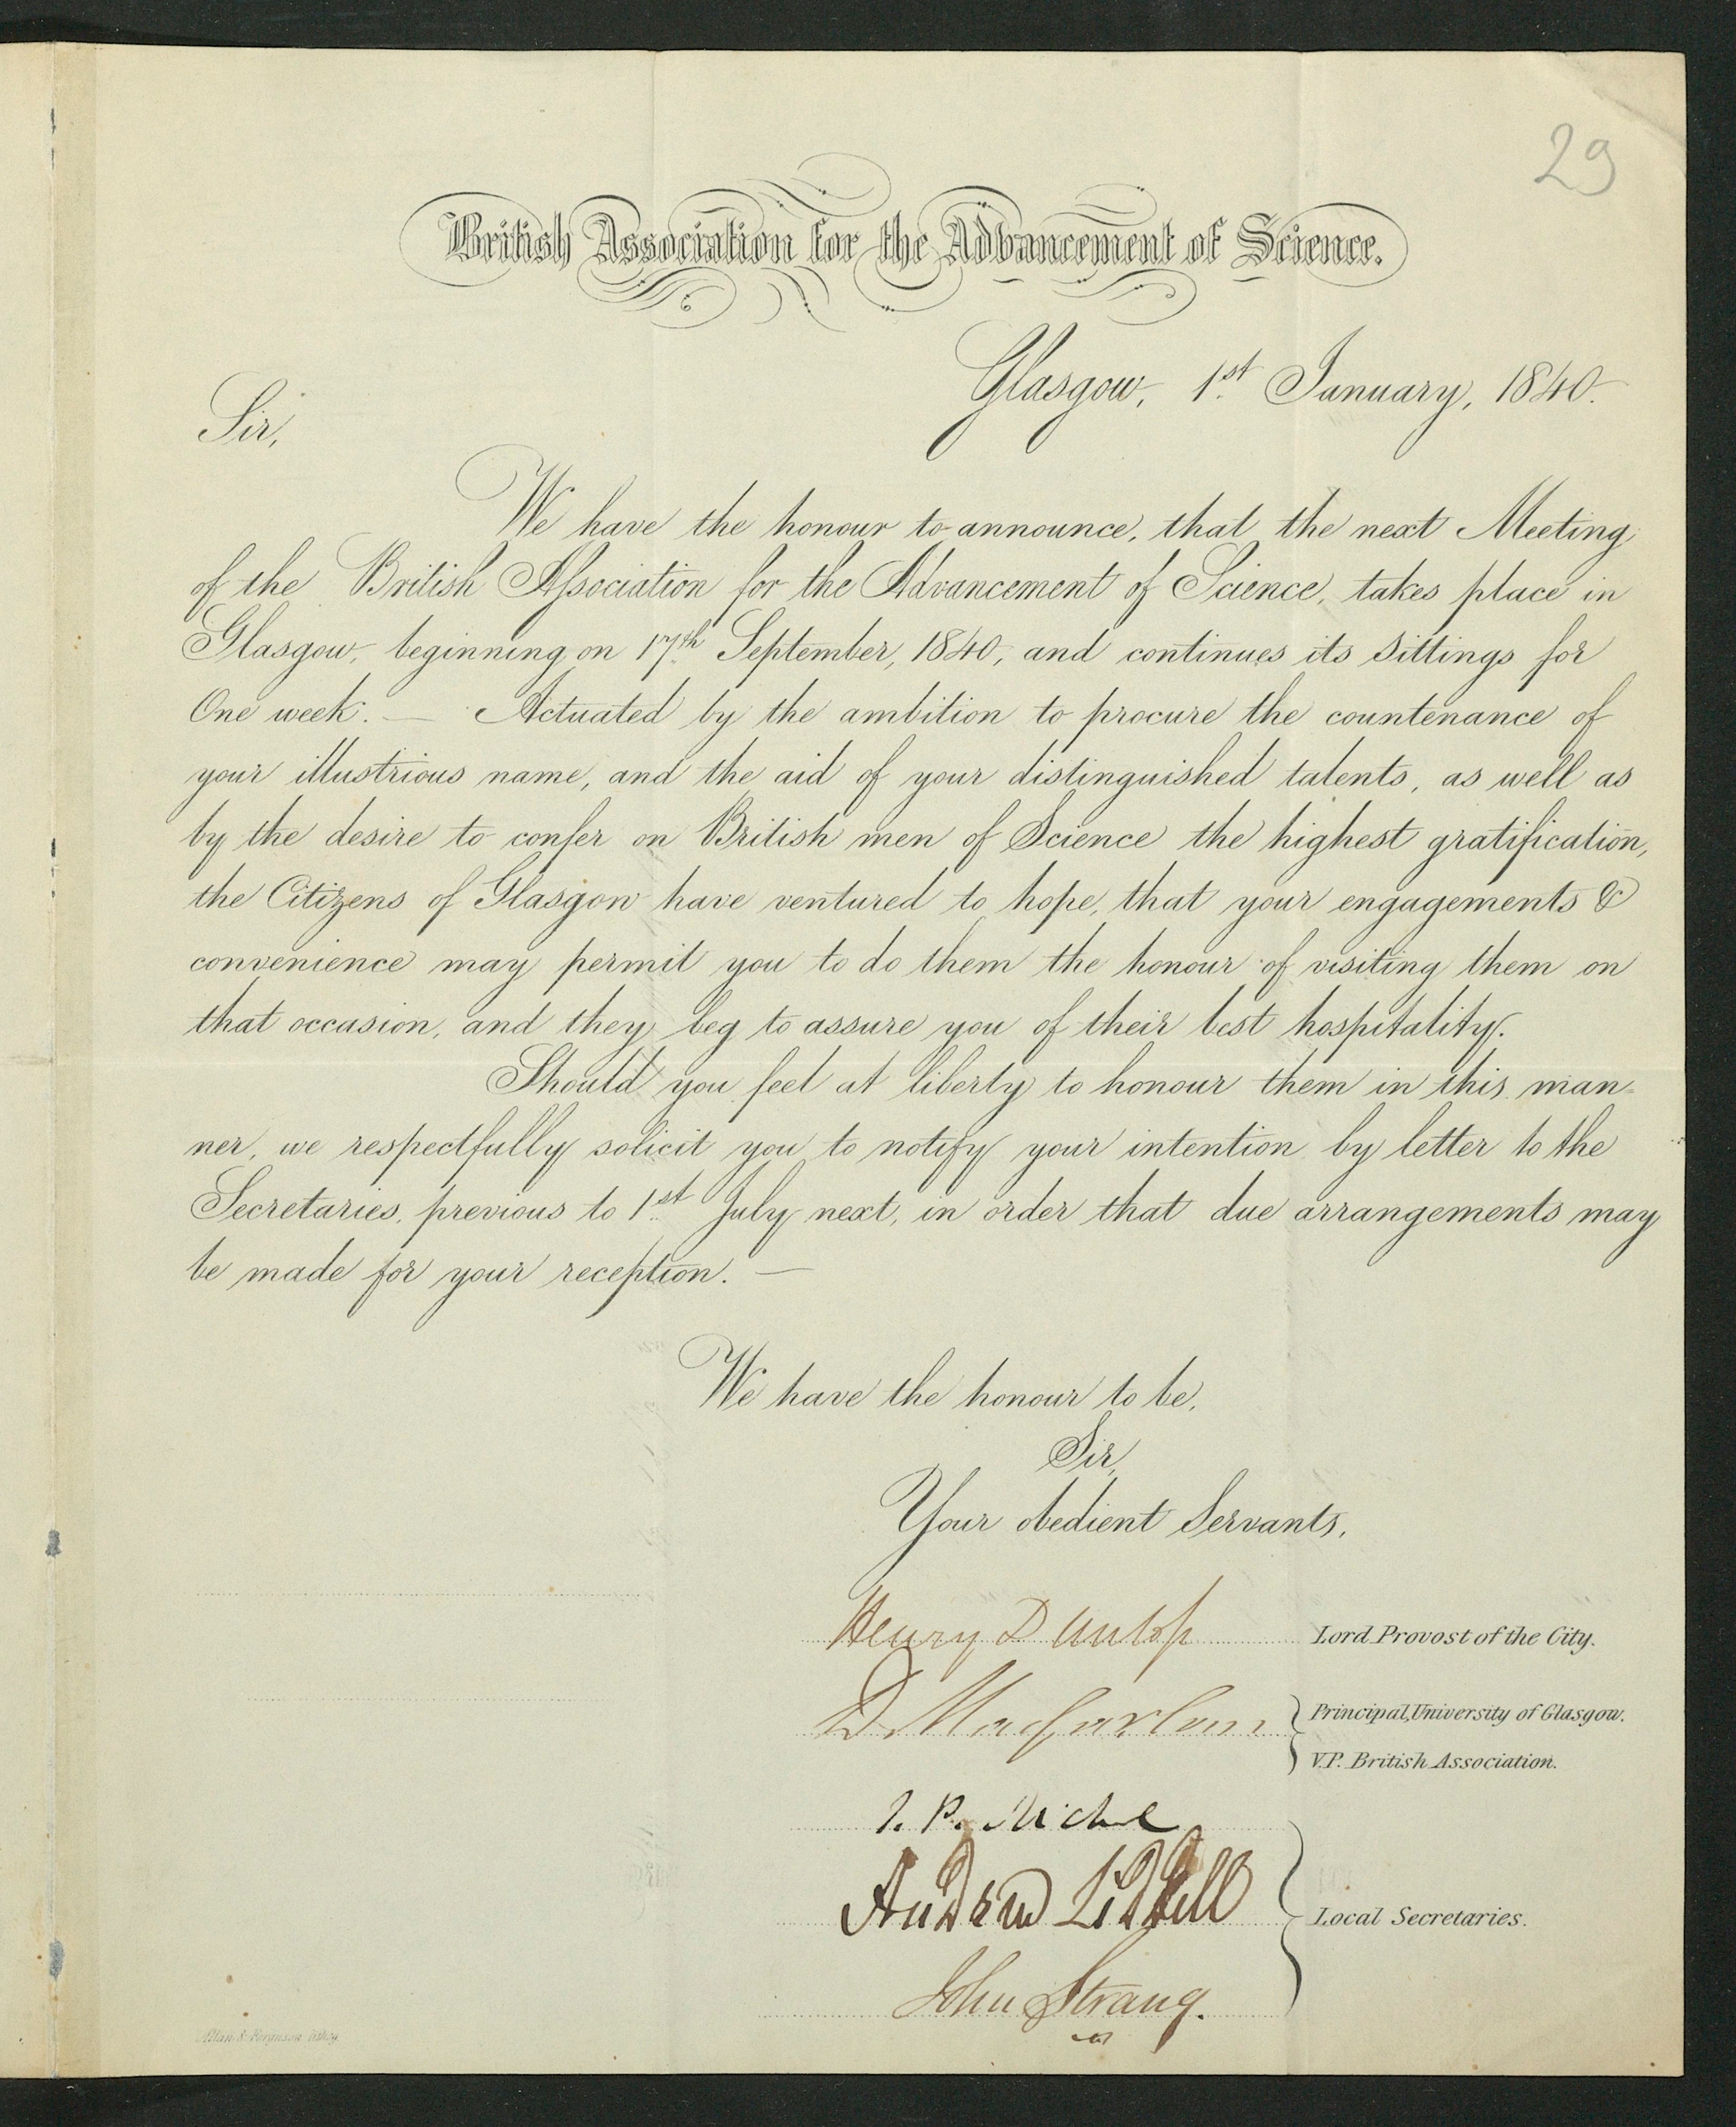 29
British Association for the Advancement of Science.
Glasgow, 1st January, 1840.
Sir,
We have the honour to announce, that the next Meeting
of the British Association for the Advancement of Science, takes place in
Glasgow, beginning on 17th September, 1840, and continues its sittings for
One week. — Actuated by the ambition to procure the countenance of
your illustrious name, and the aid of your distinguished talents, as well as
by the desire to confer on British men of Science the highest gratification,
the Citizens of Glasgow have ventured to hope, that your engagements &
convenience may permit you to do them the honour of visiting them on
that occasion, and they beg to assure you of their best hospitality.
Should you feel at liberty to honour them in this man-
ner, we respectfully solicit you to notify your intention by letter to the
Secretaries, previous to 1st July next, in order that due arrangements may
be made for your reception. —
We have the honour to be,
Sir,
Your obedient Servants,
Henry Dunlop Lord Provost of the City.
D. Macfarlan Principal, University of Glasgow.
V.P. British Association.
J. P. Nichol
Andrew Liddell Local Secretaries.
John Strang.
Allan & Ferguson lithog.